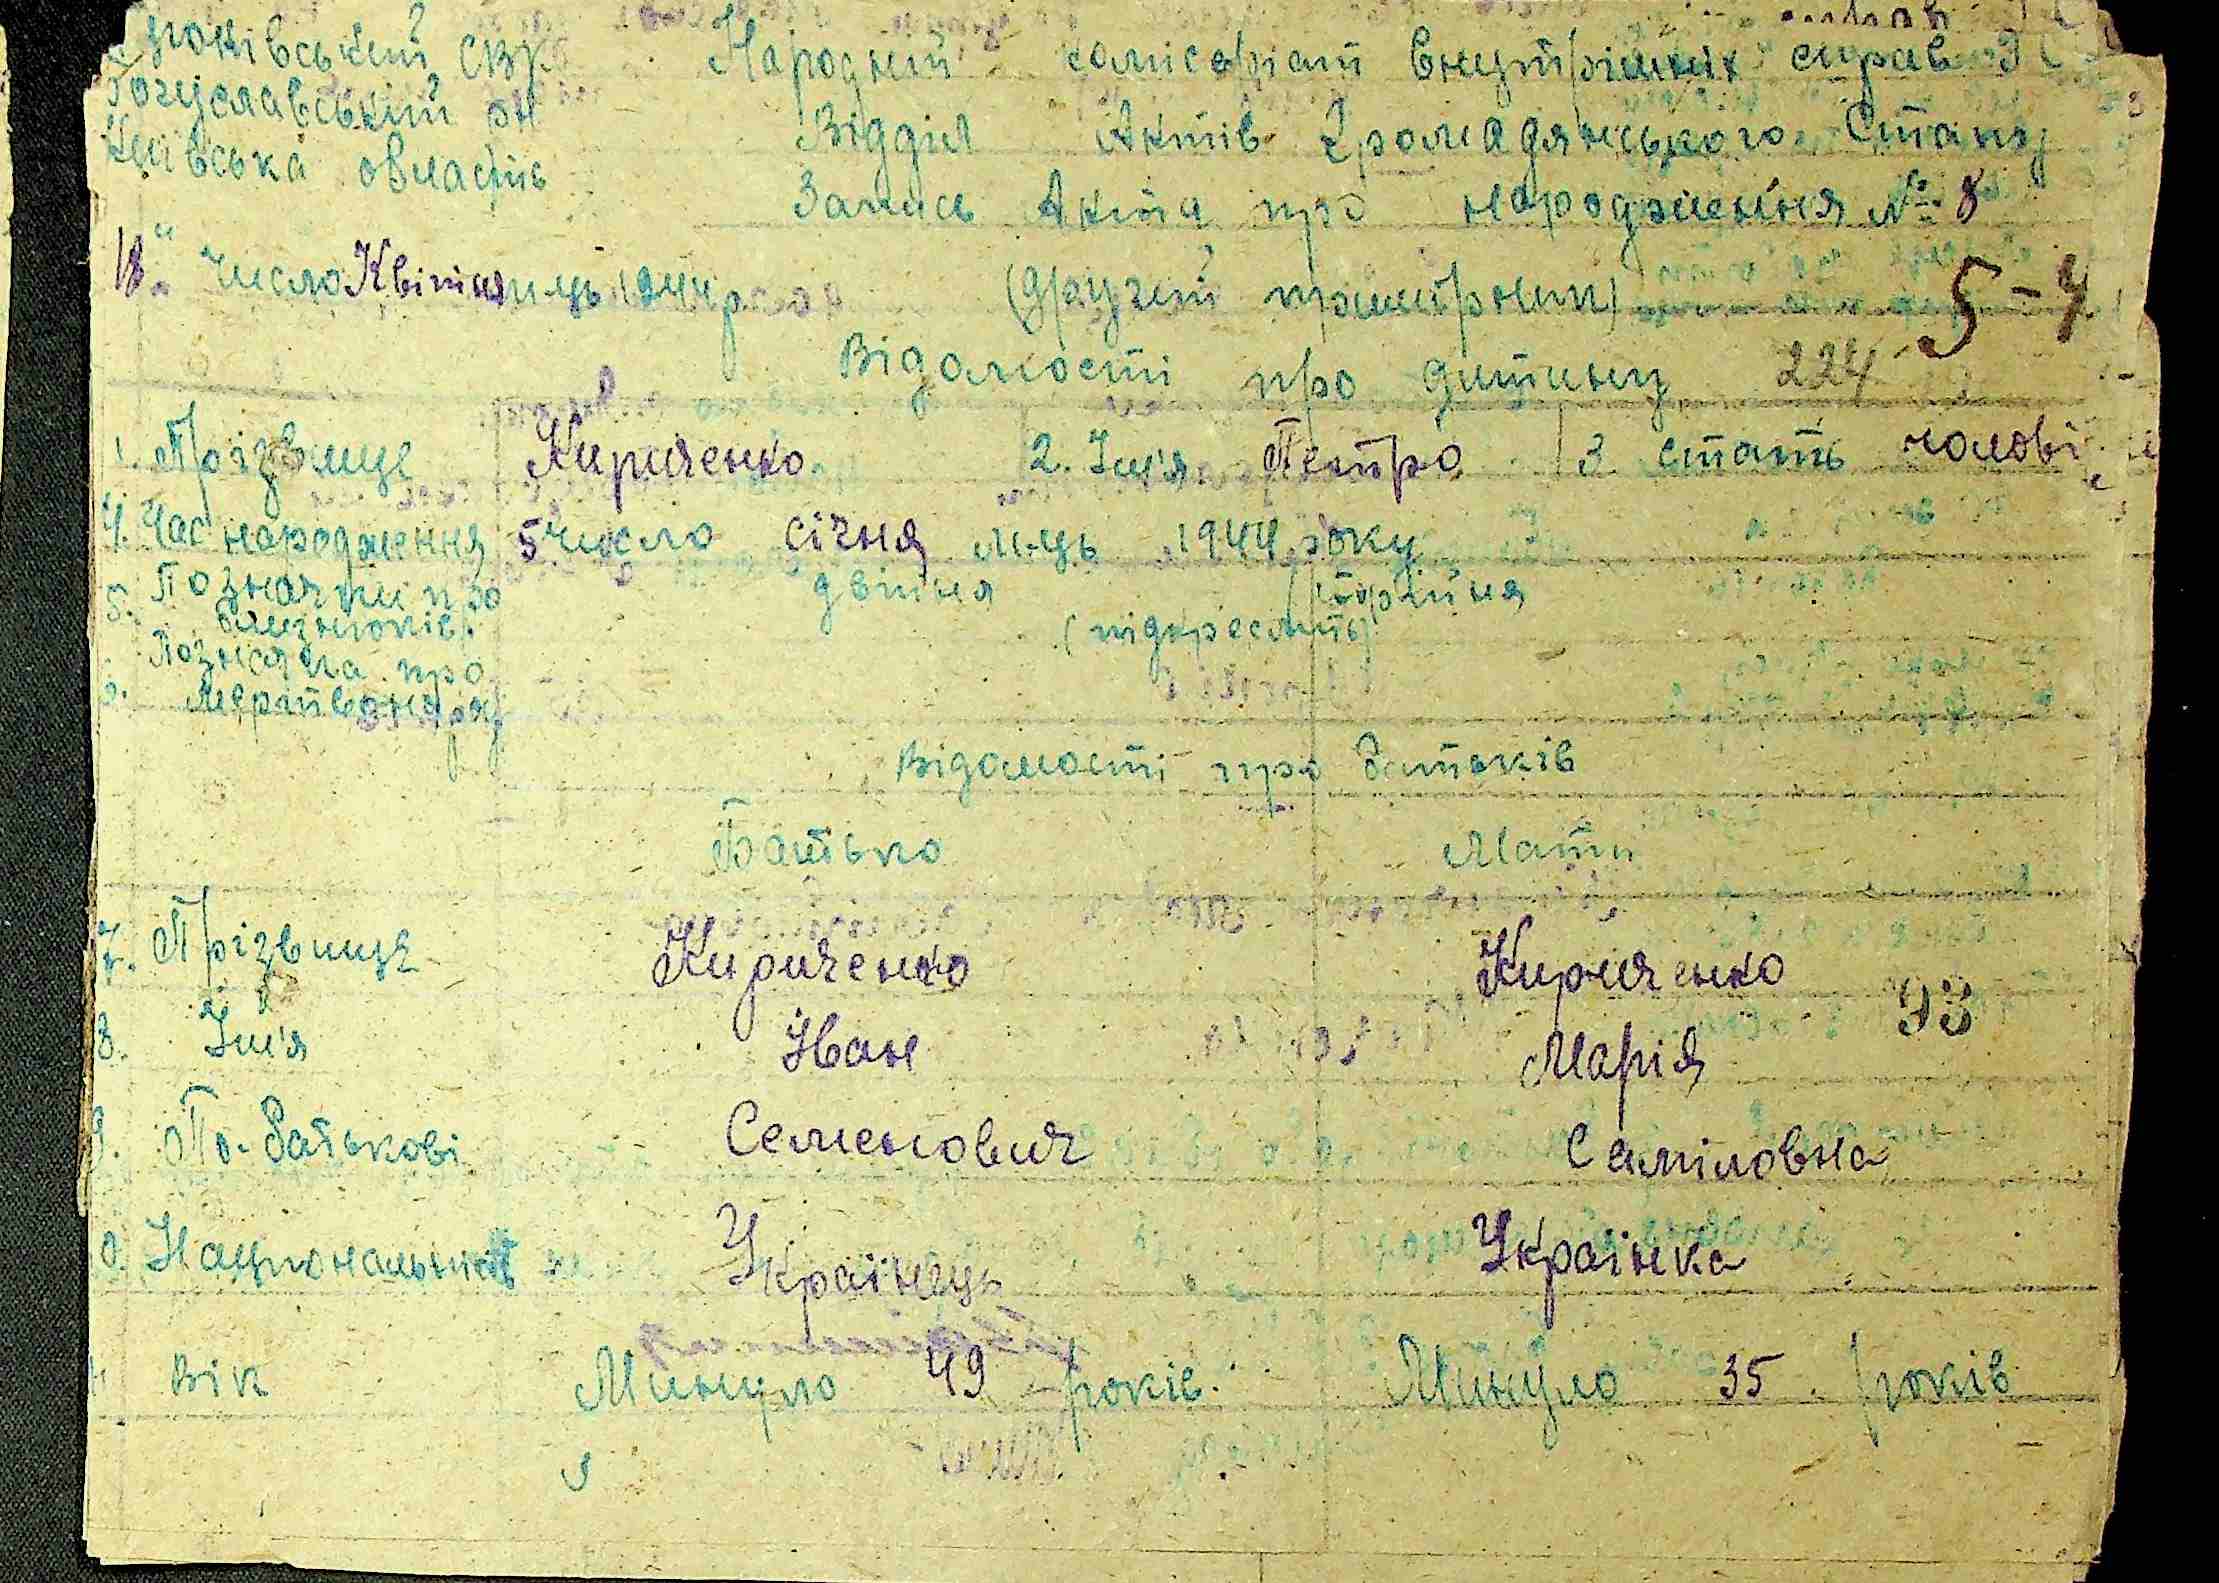 Народний комісаріат внутрішніх справ
Богуславський рн
Відділ Актів Громадянського Стану
Київська область
Запись Акта про народження № 8
18 число Квітня м-ць 1944 р (другий примірник) 5-4
Відомості про дитину 224
1. Прізвище Кириченко 2. Ім'я Петро 3 стать чолові
4. Час народження 5 число січня м-ць 1944 року
5. Позначки про близнюків двійня трійня
(підкреслить)
Позначка про мертвонар
Відомості про батьків
Батько Мати
7. Прізвище Кириченко Кириченко
93
8. Ім'я Іван Марія
9. По-батькові Семенович Саміловна
Національність Українець Українка
Вік Минуло 49 років. Минуло 35 років